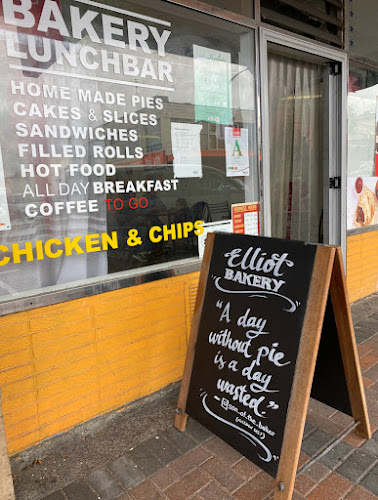 BAKERY
LUNCHBAR
HOME MADE PIES
CAKES & SLICES
SANDWICHES
FILLED ROLLS
HOT FOOD
ALL DAY BREAKFAST
COFFEE TO GO
CHICKEN & CHIPS
A
Elliot
BAKERY
"A day
without pie
is a day
wasted."